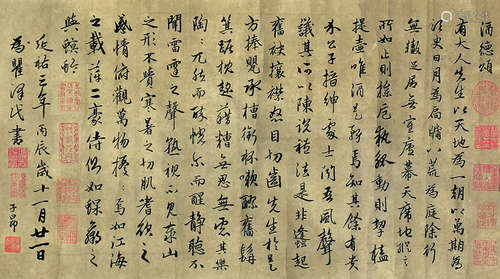 酒德頌
有大人先生以天地為一朝以萬期為
須臾日月為扃牖八荒為庭除行
無轍迹居無室廬幕天席地縱意
所如止則操卮執觚動則挈榼
提壺唯酒是務焉知其餘有貴
介公子搢紳處士聞吾風聲
議其所以陳說禮法是非蜂起
奮袂攘襟怒目切齒先生於是
方捧甖承槽銜杯漱醪奮髯
箕踞枕麴藉糟無思無慮其樂
陶〻兀然而醉怳爾而醒靜聽不
聞雷霆之聲熟視不見泰山
之形不覺寒暑之切肌嗜欲之
感情俯觀萬物擾〻焉如江海
之載萍二豪侍側如蜾蠃之
與螟蛉
延祐三年丙辰歲十一月廿一日
為瞿澤民書
子昂